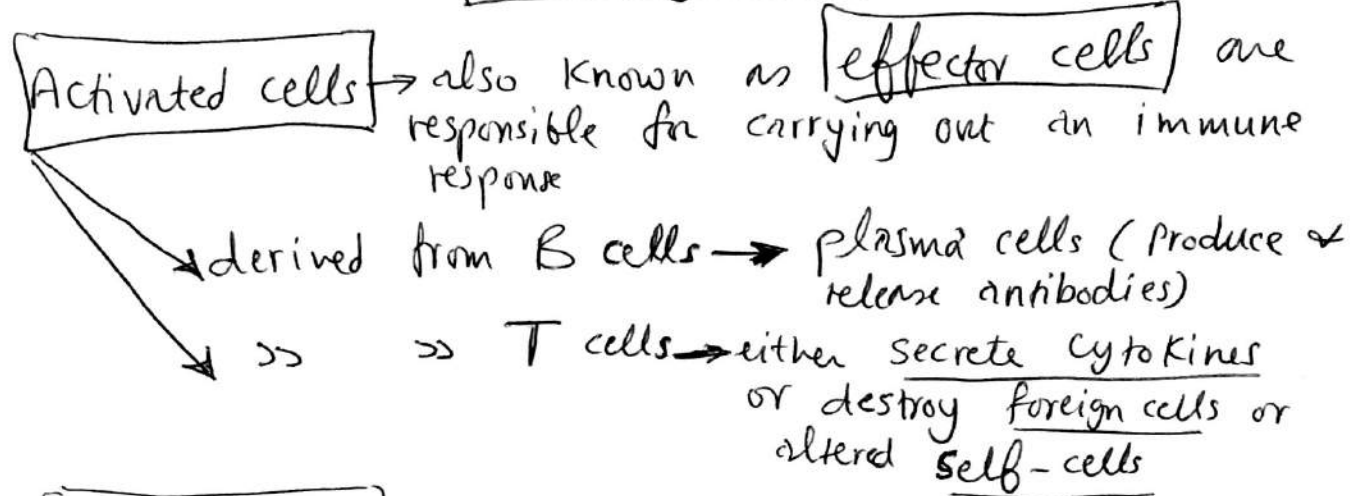 Activated cells → also known as effector cells are
responsible for carrying out an immune
response
derived from B cells → plasma cells (produce &
release antibodies)
>> >> T cells → either secrete cytokines
or destroy foreign cells or
altered self-cells